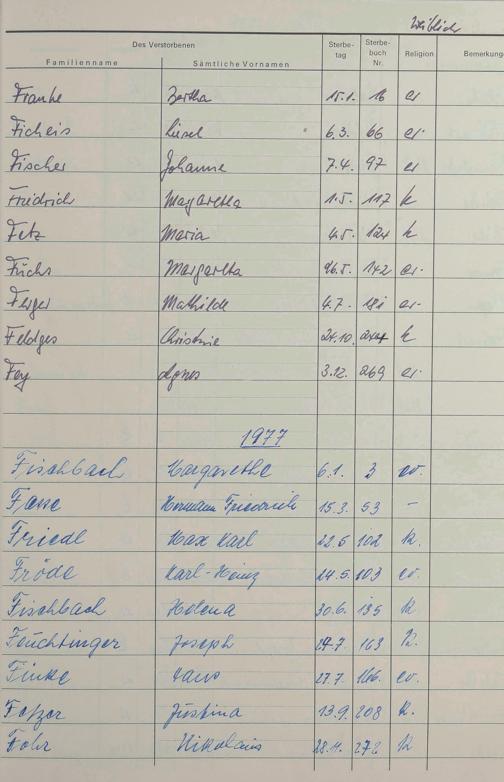 Weiblich
Des Verstorbenen
Familienname Sämtliche Vornamen Sterbe-tag Sterbe-buch Nr. Religion Bemerkung
Franke Bertha 15.1. 16 ev
Ficheis Liesel 6.3. 66 ev.
Fischer Johanne 7.4. 97 ev
Friedrich Margaretha 1.5. 117 k
Fetz Maria 4.5. 124 k
Fuchs Margaretha 26.5. 142 ev.
Ferger Mathilde 4.7. 181 ev.
Feldges Christine 24.10. k
Fey Agnes 3.12. 269 ev.
1977
Fischbach Margarethe 6.1. 3 ev.
Hermann Friedrich 15.3. 53 –
Friedl Max Karl 22.5 102 k.
Fröde Karl-Heinz 24.5. 103 ev.
Fischbach Helena 30.6. 135 k
Feuchtinger Joseph 163 k.
Finke Hans 27.7. 166. ev.
Fetzer Justina 13.9. 208 k.
Fohr Nikolaus 28.11. 272 k